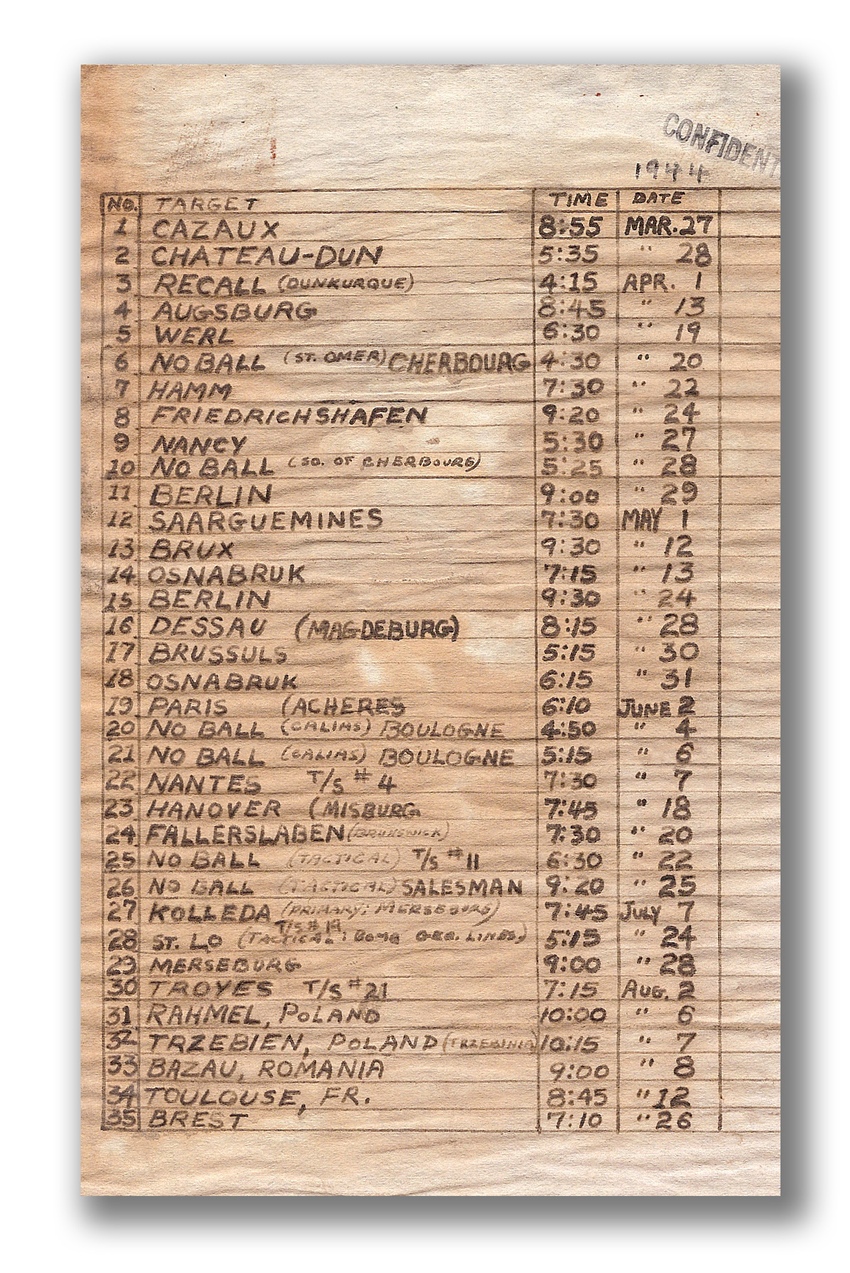 CONFIDENT
1944
NO. TARGET TIME DATE
1 CAZAUX 8:55 MAR. 27
2 CHATEAU-DUN 5:35 " 28
3 RECALL (DUNKURQUE) 4:15 APR. 1
4 AUGSBURG 8:45 " 13
5 WERL 6:30 " 19
6 NO BALL (ST. OMER) CHERBOURG 4:30 " 20
7 HAMM 7:30 " 22
8 FRIEDRICHSHAFEN 9:20 " 24
9 NANCY 5:30 " 27
10 NO BALL (SO. OF CHERBOURG) 5:25 " 28
11 BERLIN 9:00 " 29
12 SAARGUEMINES 7:30 MAY 1
13 BRUX 9:30 " 12
14 OSNABRUK 7:15 " 13
15 BERLIN 9:30 " 24
16 DESSAU (MAGDEBURG) 8:15 " 28
17 BRUSSULS 5:15 " 30
18 OSNABRUK 6:15 " 31
19 PARIS (ACHERES 6:10 JUNE 2
20 NO BALL (CALIAS) BOULOGNE 4:50 " 4
21 NO BALL (CALIAS) BOULOGNE 5:15 " 6
22 NANTES T/S # 4 7:30 " 7
23 HANOVER (MISBURG 7:45 " 18
24 FALLERSLABEN (BRUNSWICK) 7:30 " 20
25 NO BALL (TACTICAL) T/S #11 6:30 " 22
26 NO BALL (TACTICAL) SALESMAN 9:20 " 25
27 KOLLEDA (PRIMARY: MERSEBURG) 7:45 JULY 7
T/S # 19
28 ST. LO (TACTICAL: BOMB GER. LINES) 5:15 " 24
29 MERSEBURG 9:00 " 28
30 TROYES T/S #21 7:15 AUG. 2
31 RAHMEL, POLAND 10:00 " 6
32 TRZEBIEN, POLAND (TRZEBINIA) 10:15 " 7
33 BAZAU, ROMANIA 9:00 " 8
34 TOULOUSE, FR. 8:45 " 12
35 BREST 7:10 " 26